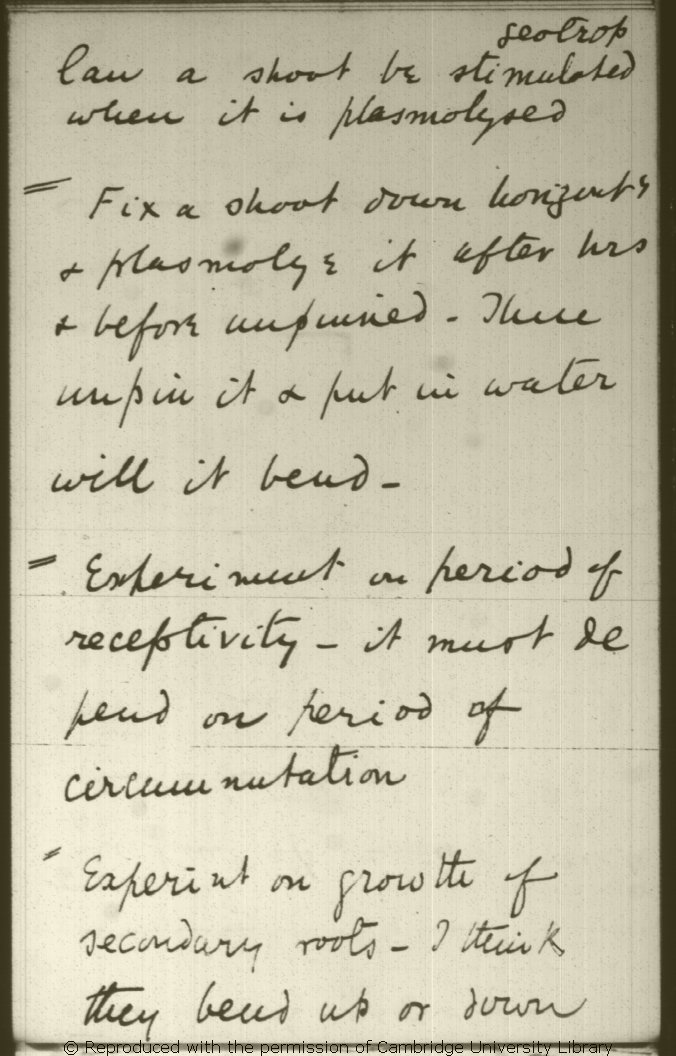 geotrop
Can a shoot be stimulated
when it is plasmolysed
= Fix a shoot down horizontly
& plasmolyse it after hrs
& before unpinned - Then
unpin it & put in water
will it bend -
= Experiment on period of
receptivity - it must de
pend on period of
circumnutation
= Experint on growth of
secondary roots - I think
they bend up or down
© Reproduced with the permission of Cambridge University Library